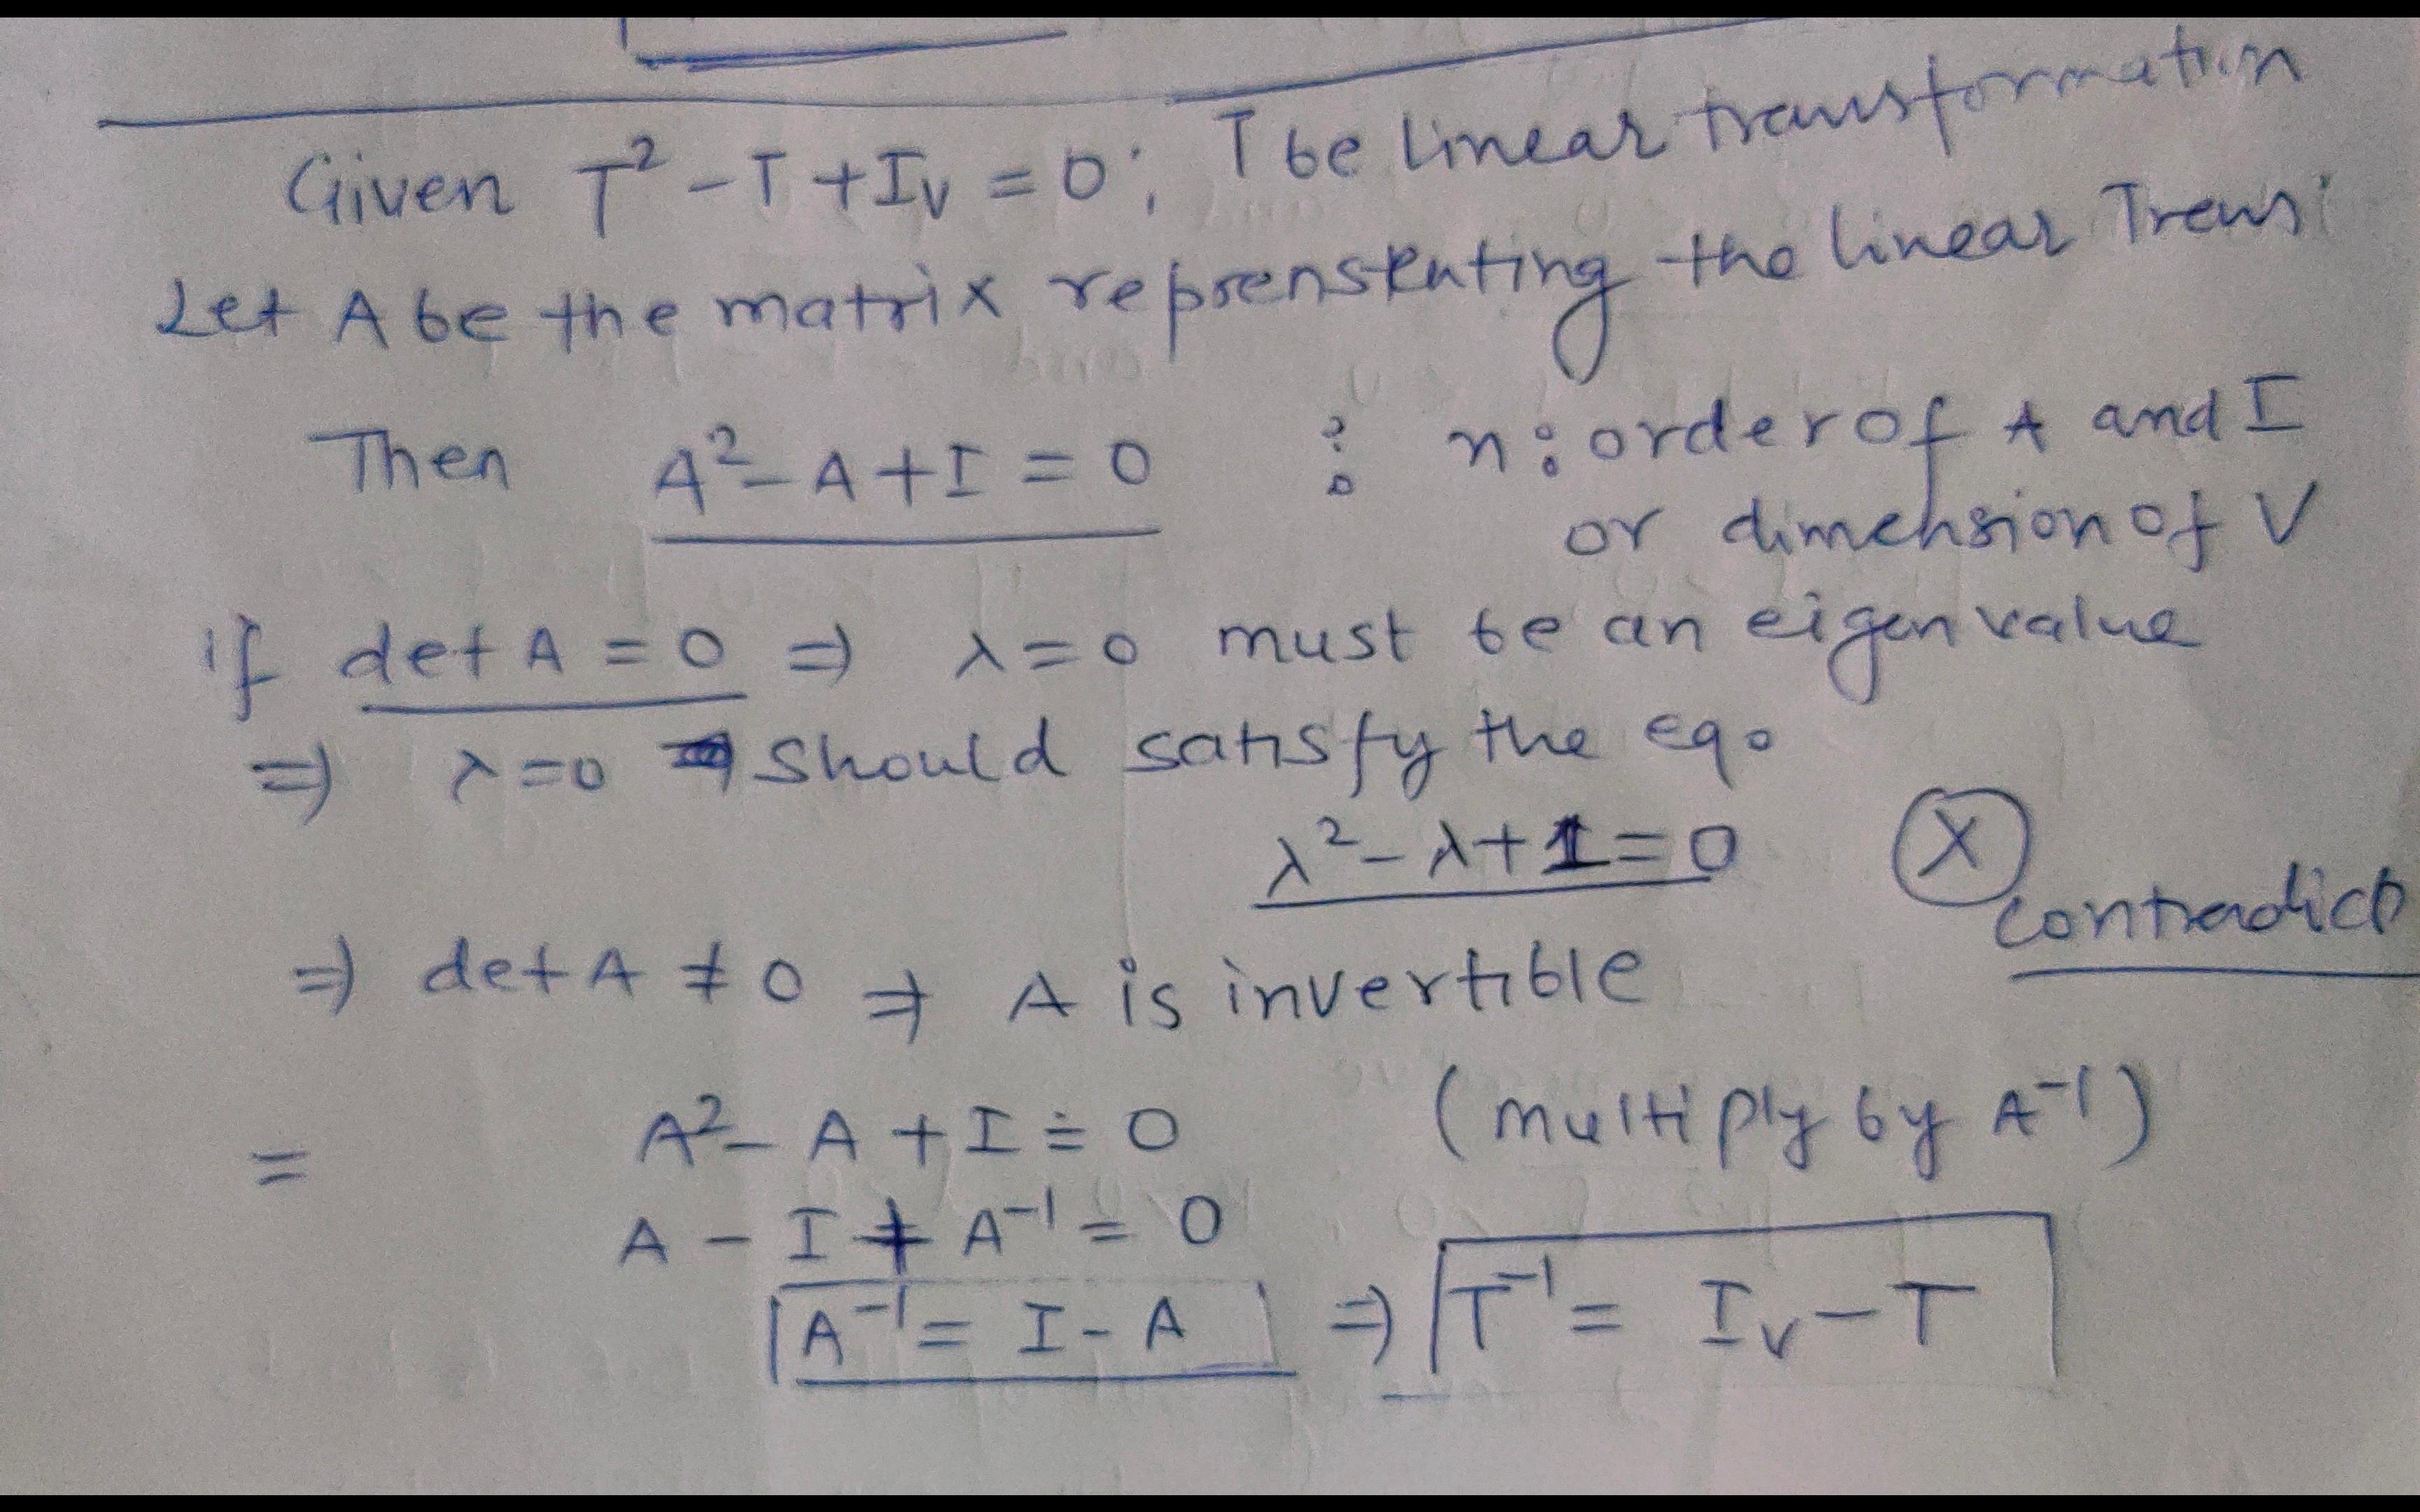 Given T² - T + Iᵥ = 0; T be linear transformation
Let A be the matrix reprenstenting the linear Trans:
Then A² - A + I = 0 : n: order of A and I
or dimension of V
if det A = 0 ⇒ λ = 0 must be an eigen value
⇒ λ = 0 should satisfy the eq.
λ² - λ + 1 = 0 Ⓧ
contradict
⇒ det A ≠ 0 ⇒ A is invertible
= A² - A + I = 0 (multiply by A⁻¹)
A - I + A⁻¹ = 0
A⁻¹ = I - A ⇒ T⁻¹ = Iᵥ - T